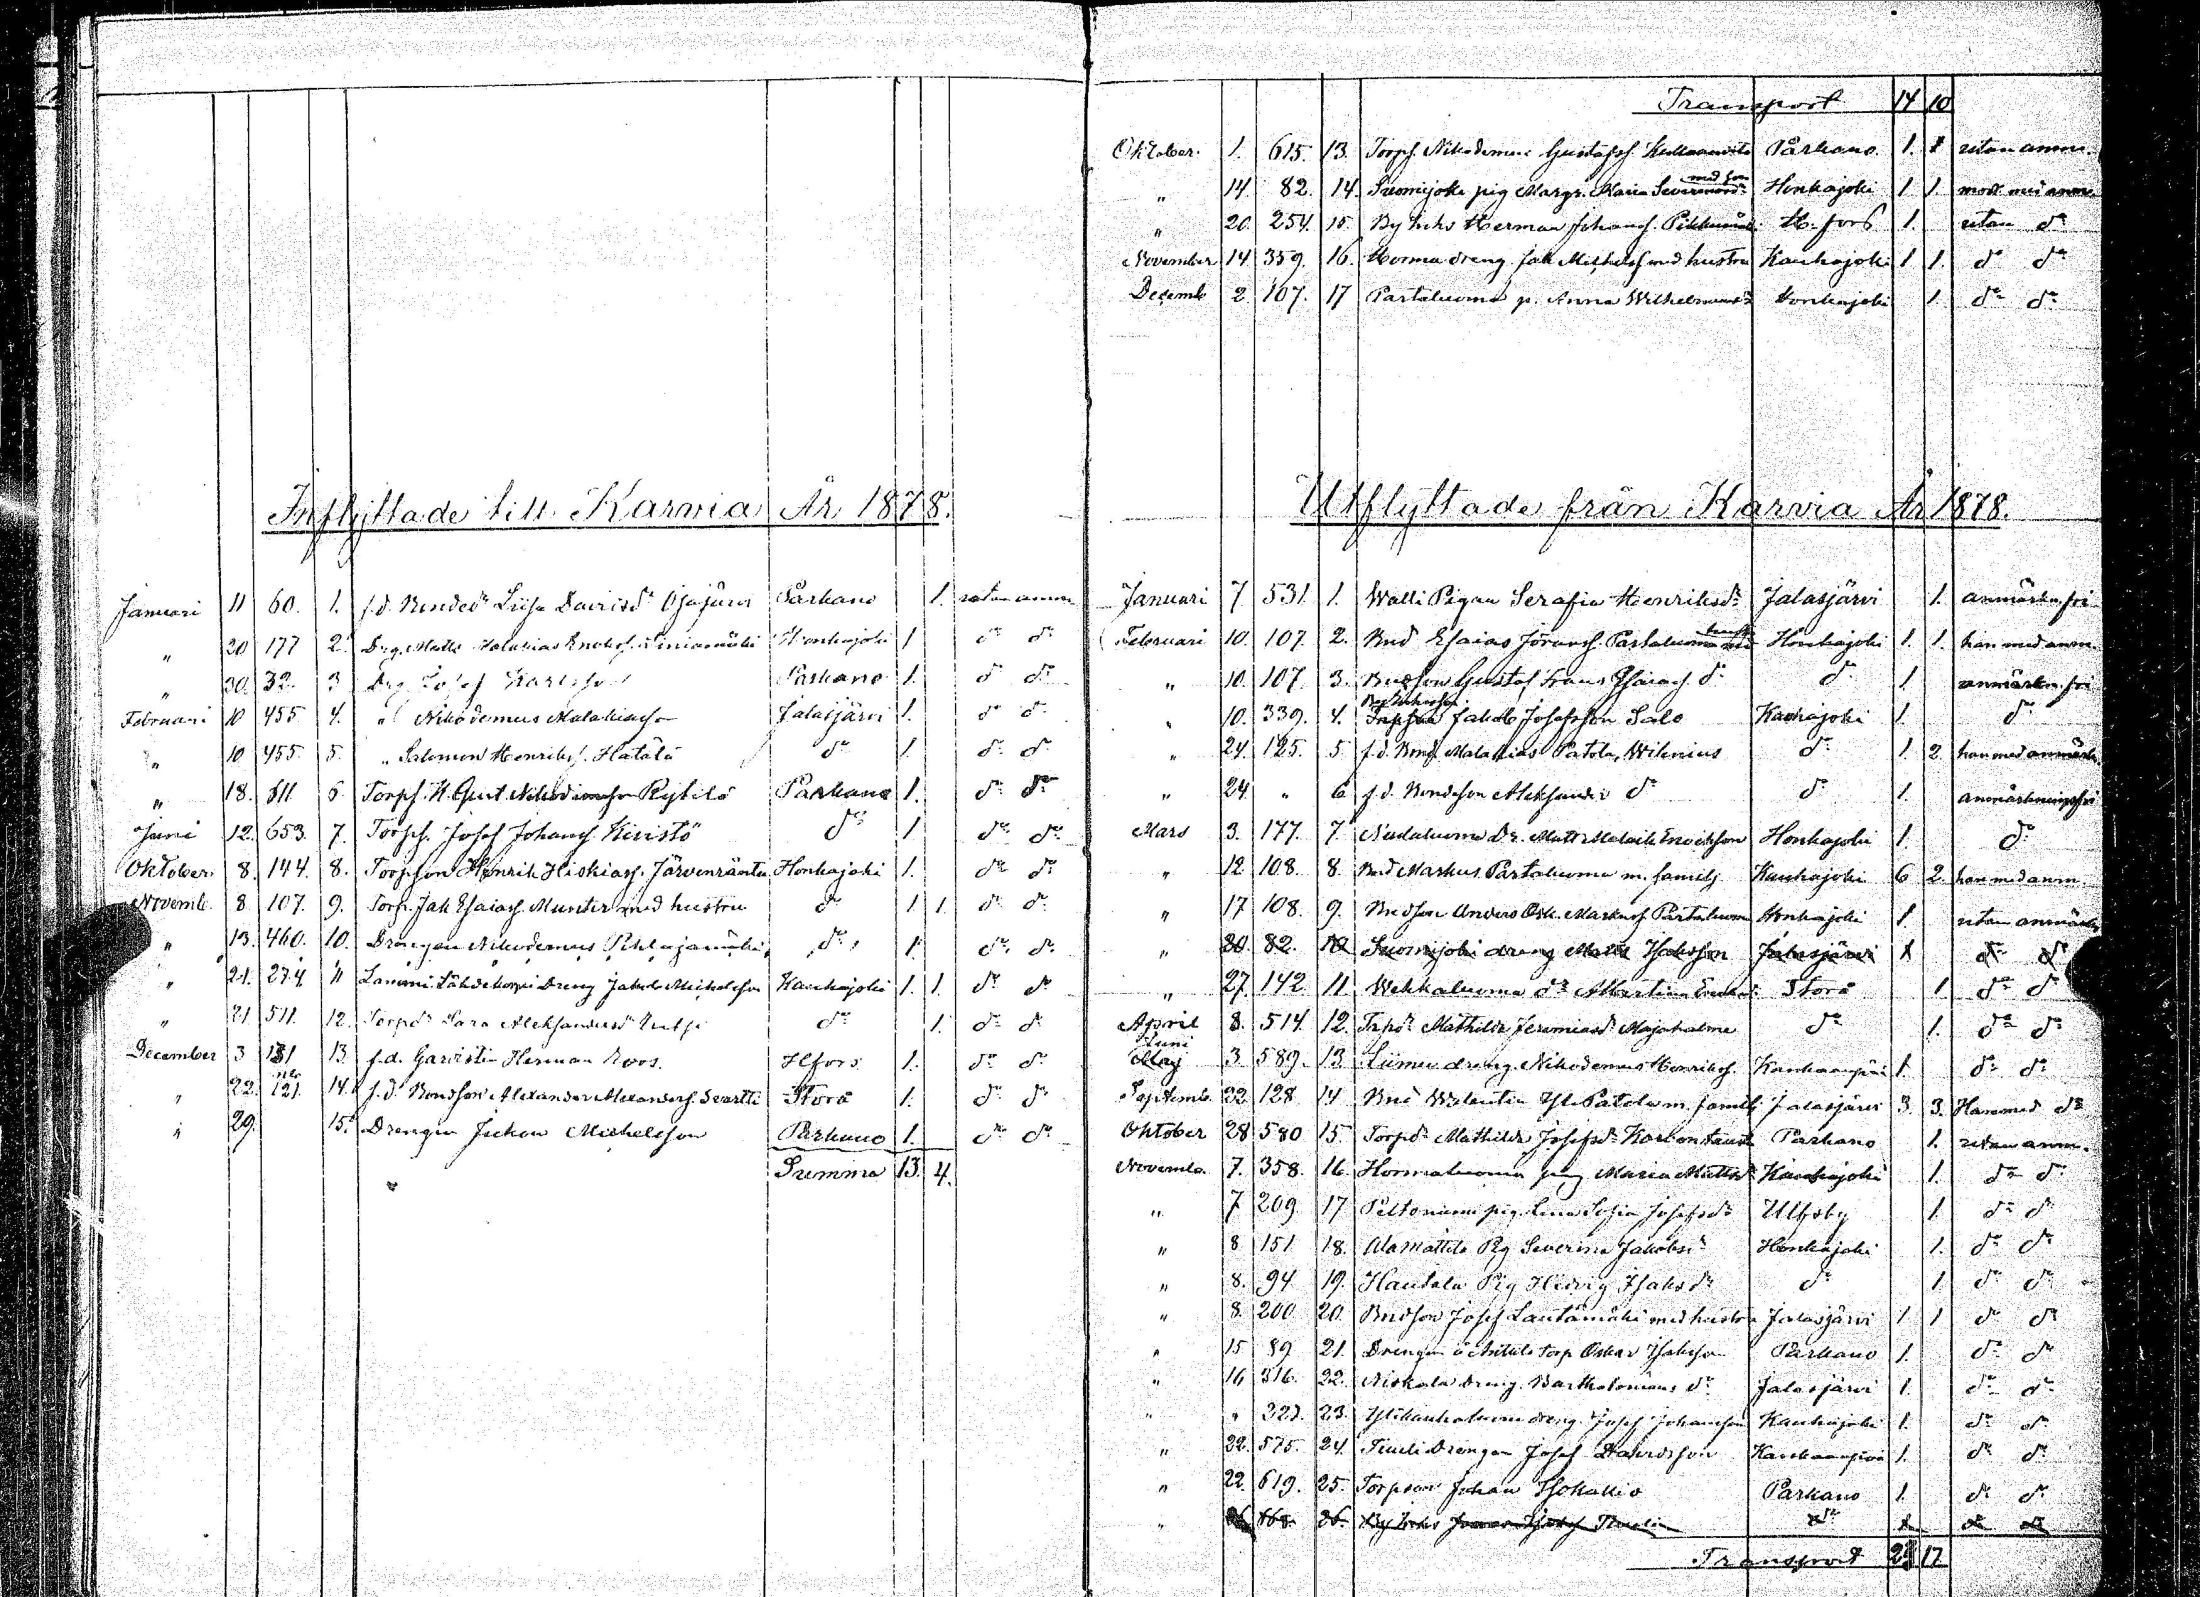 Inflyttade till Karvia År 1878.
Januari 11 60. 1. f.d. Bondedr Liisa Davidsdr Ojajärvi Parkano 1. utan anm
" 20 177 2. Drg. Matts Malakias Enoksf. Honkajoki 1 dr dr
" 30. 32. 3 Drg Josef Karlsson Parkano 1. dr dr
Februari 10 455 4. " Nikodemus Malakiasson Jalasjärvi 1. dr dr
" 10 455 5. " Salomon Henriksf. Hätälä dr 1. dr dr
" 18. 511 6 Torpf. K. Gust Nikodemusson Rytilä Parkano 1. dr dr
Juni 12. 653. 7. Torpf. Josef Johansf. Kivistö dr 1 dr dr
Oktober. 8. 144. 8. Torpson Henrik Hiskiasf. Järvenränta Honkajoki 1. dr dr
Novemb. 8 107. 9. Torp. Jak Esaiasf. Munter med hustru dr 1 1. dr dr
" 13. 460. 10. Drengen Nikodemus Pihlajamäki dr 1. dr dr
" 21. 274 11 Lammi Lähdekorpi Dreng Jakob Michelsson Kauhajoki 1. 1. dr dr
" 21 511. 12. Torpdr Sara Aleksandersdr dr 1. dr dr
December 3 131 13. f.d. Garvistin Herman Roos. Hfors 1. dr dr
" 22. 121. 14. f.d. Bondson Alexander Alexandersf. Svartti Storå 1. dr dr
" 29. 15. Drengen Juho Michelsson Parkano 1. dr dr
Summa 13. 4.
Transport 14 10
Oktober. 1. 615. 13. Torpf. Nikodemus Gustafsf. Parkano. 1. 1 utan anm.
" 14. 82. 14. Suomijoki pig Margr. Maria med son Honkajoki 1 1. med anm
" 20. 254. 15. By Inhs Herman Johansf. H.fors 1. utan dr
November 14. 359. 16. Horma dreng Jak Michelsf med hustru Kauhajoki 1 1. dr dr
Decemb 2. 107. 17 Partaluoma p. Anna Wilhelmina Honkajoki 1. dr dr
Utflyttade från Karvia År 1878.
Januari 7 531. 1. Walli Pigan Serafia Henriksdr Jalasjärvi 1. anmärkn.fri
Februari 10. 107. 2. Bnd Esaias Jöransf. Partaluoma Honkajoki 1. 1. han med anm.
" 10. 107 3. Bndson Gustaf Frans Esaiasf. dr dr 1 anmärkn.fri
" 10. 339. 4. Jakob Josefsson Salo Kauhajoki 1. dr
" 24. 125. 5 f.d. Bond. Malakias Patola, Wilenius dr 1. 2 han med anmärk
" 24 " 6 f.d. Bondeson Aleksander dr dr 1. anmärkningsfri
Mars 3. 177. 7. Nudaluoma Dr. Matts Malach Enoksson Honkajoki 1. dr
" 12 108. 8. Bnd Markus Partaluoma m. familj Kauhajoki 6 2. han med anm.
" 17 108. 9. Bndson Anders Osk. Markusf Partaluoma Honkajoki 1. utan anmärk
" 20. 82. 10 Suomijoki dreng Matts Isaksson Jalasjärvi 1 dr dr
" 27. 142. 11. Wehkaluoma dr Albertina Storå 1. dr dr
April 8. 514. 12. Trpdr Mathilda Jeremiasdr Majahalme dr 1. dr dr
Juni
Maj 3. 589. 13. Liimu dreng. Nikodemus Henriksf. Kankaanpää 1. dr dr
Septemb. 22 128 14 Bnd Walentin Yli Patola m. familj Jalasjärvi 3. 3. Han med dr
Oktober 28 580 15. Torpdr Mathilda Josefsdr Parkano 1. utan anm.
Novemb. 7. 358. 16. Hormaluoma pig Maria Mattsdr Kauhajoki 1. dr dr
" 7 209. 17 Peltoniemi pig. Lena Sofia Josefsdr Ulfsby 1. dr dr
" 8 151 18. Alamattila Pig Severina Jakobsdr Honkajoki 1. dr dr
" 8. 94 19. Hautala Pig Hedvig Isaksdr dr 1. dr dr
" 8. 200 20. Bndson Josef Lautamäki med hustru Jalasjärvi 1. 1 dr dr
" 15 89 21. Drengen å Anttila torp Oskar Isaksson Parkano 1. dr dr
" 16 316. 22. Niskala dreng. Bartholomäus dr Jalasjärvi 1. dr dr
" " 323. 23. Ylikauhaluoma dreng. Josef Johansson Kauhajoki 1. dr dr
" 22. 575. 24. Tiuli Drengen Josef Davidsson Kankaanpää 1. dr dr
" 22. 619. 25. Torpson Johan Isokallio Parkano 1. dr dr
" 26 168. 26. By Inhs dr 1 dr dr
Transport 17